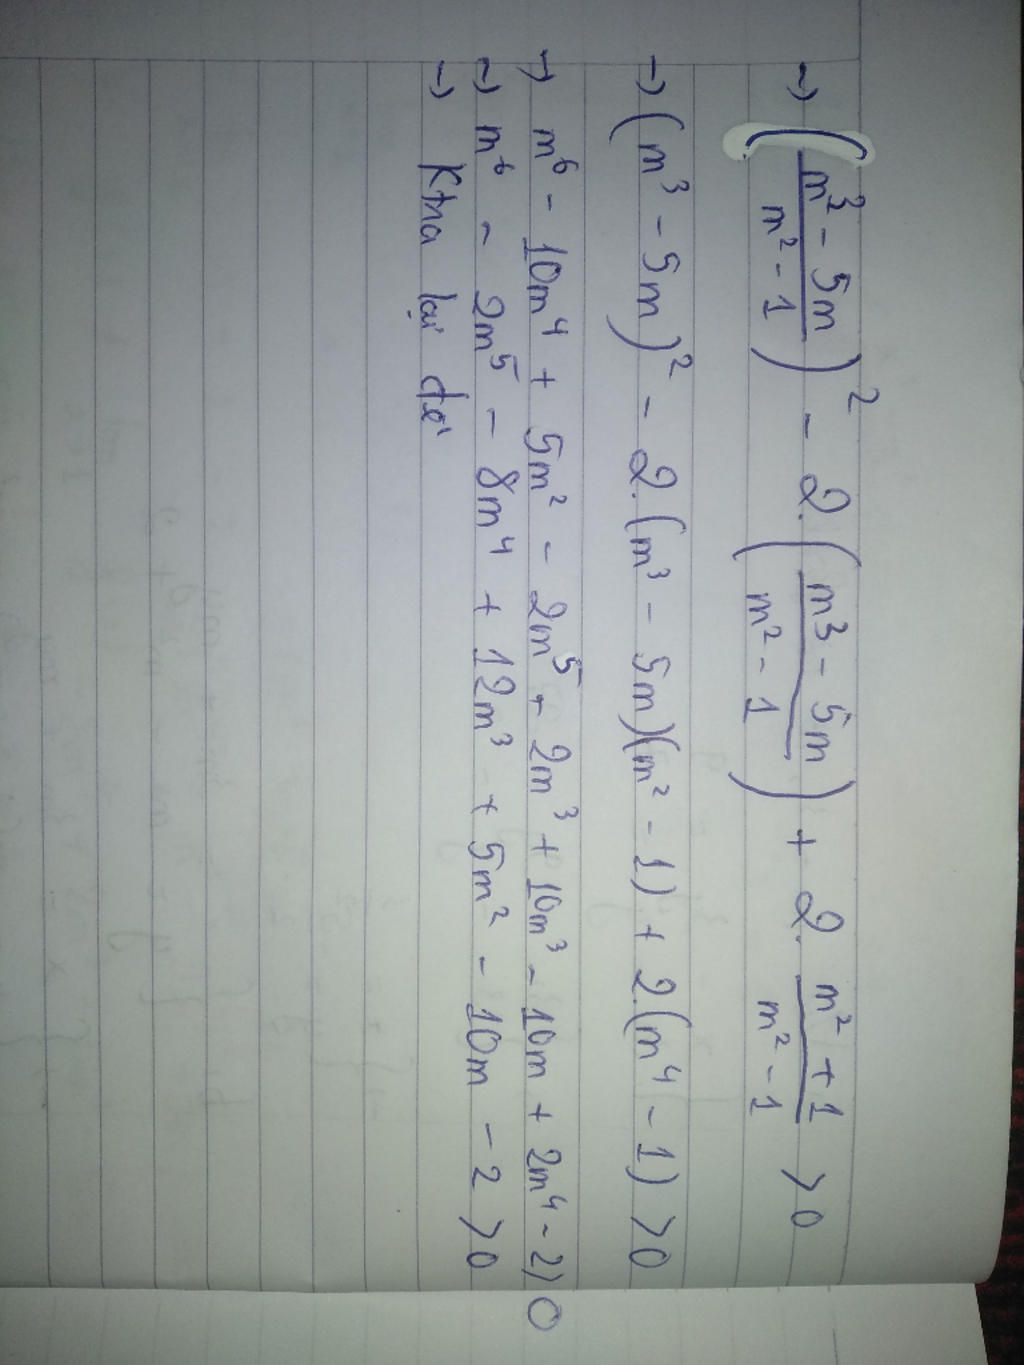 → ((m³ - 5m)/(m² - 1))² - 2.((m³ - 5m)/(m² - 1)) + 2.(m² + 1)/(m² - 1) > 0
→ (m³ - 5m)² - 2.(m³ - 5m)(m² - 1) + 2.(m⁴ - 1) > 0
→ m⁶ - 10m⁴ + 5m² - 2m⁵ + 2m³ + 10m³ - 10m + 2m⁴ - 2 > 0
→ m⁶ - 2m⁵ - 8m⁴ + 12m³ + 5m² - 10m - 2 > 0
→ Ktra lại đề